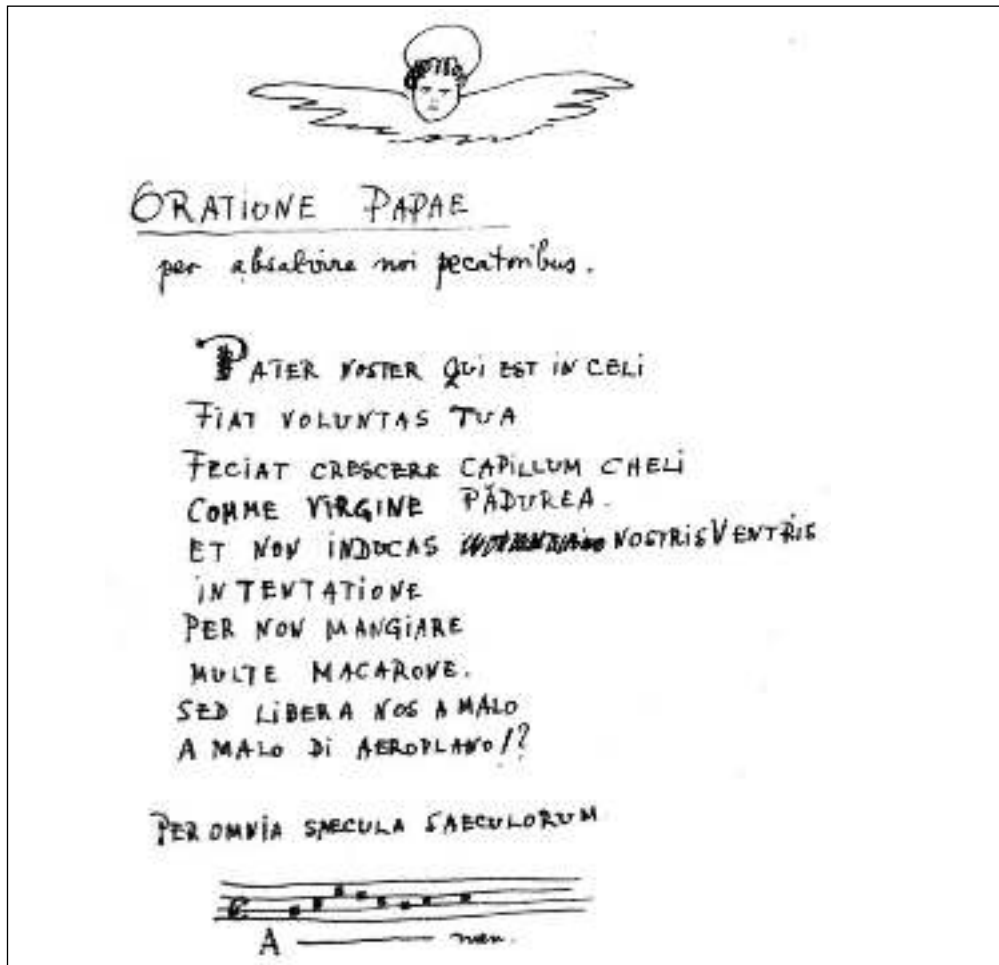 ORATIONE PAPAE
per absolvire noi pecatoribus.
PATER NOSTER QUI EST IN CELI
FIAT VOLUNTAS TUA
FECIAT CRESCERE CAPILLUM CHELI
COMME VIRGINE PĂDUREA.
ET NON INDUCAS NOSTRIS VENTRIS
IN TENTATIONE
PER NON MANGIARE
MULTE MACARONE.
SED LIBERA NOS A MALO
A MALO DI AEROPLANO!?
PER OMNIA SAECULA SAECULORUM
A — men.